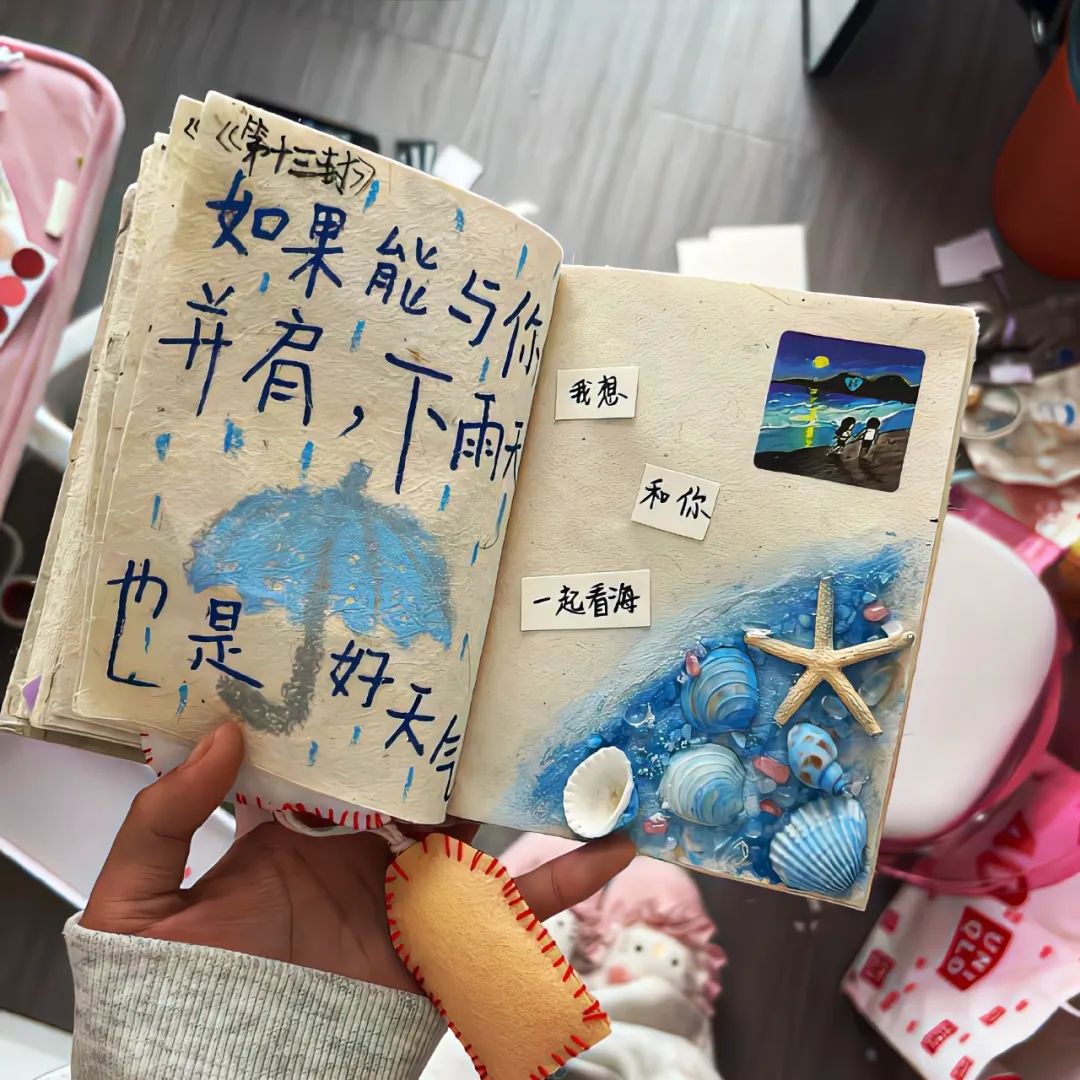 《第十三封》
如果能与你
并肩，下雨天
也是好天气
我想
和你
一起看海
UNI
QLO